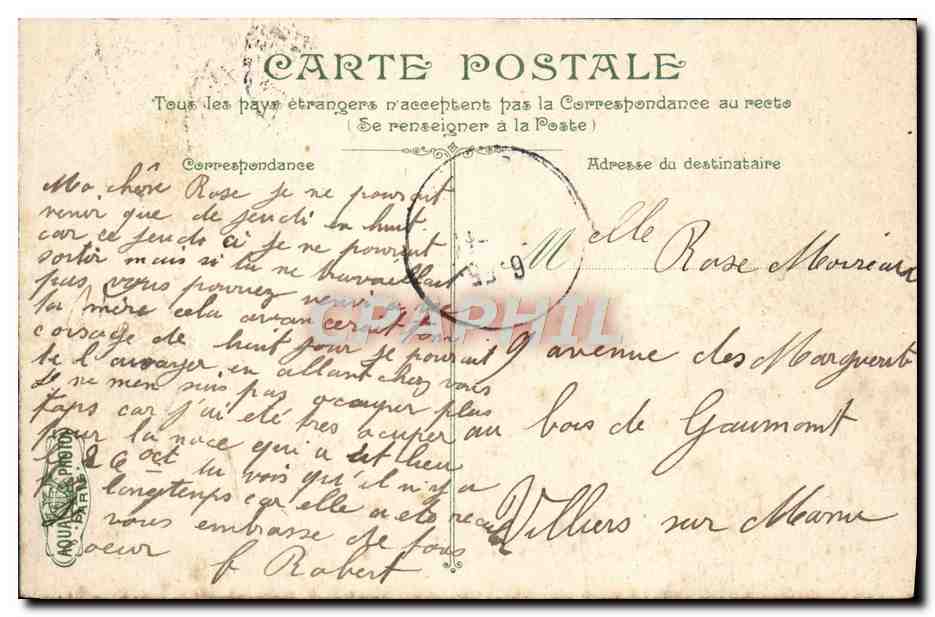 CARTE POSTALE
Tous les pays étrangers n'acceptent pas la Correspondance au recto
(Se renseigner à la Poste)
Correspondance
Adresse du destinataire
Ma chère Rose je ne pourait
venir que de jeudi en huit
car ce jeudi ci je ne pourait
sortir mais si tu ne travaillait
pas vous pouriez venir
ta mère cela avancerait ton
corsage de huit jour je pourait
te l'
en allant chez vous
je ne men suis pas occuper plus
car j'ai été tres ocuper
pour la noce qui a eut lieu
le 26 oct tu vois qu'il n'y a
pas longtemps car elle a ete
vous embrasse de tous
coeur
Robert
Melle
Rose
9 avenue des Marguerite
au bois de Gaumont
Villiers sur Marne
CPAPHIL
AQUA PHOTO
PARIS